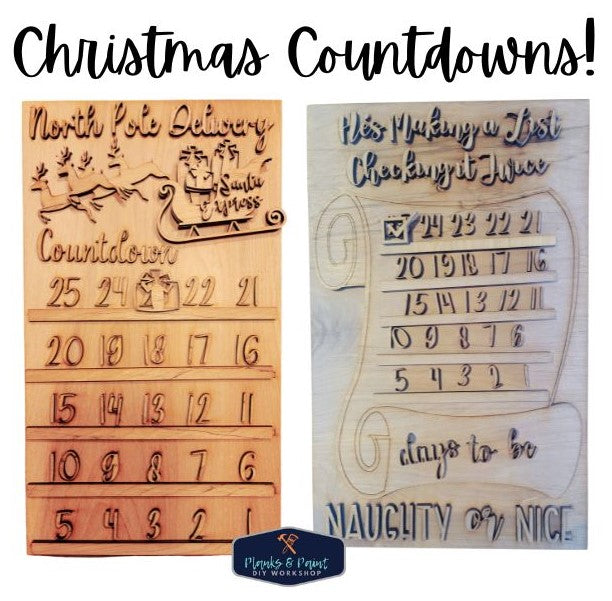 Christmas Countdowns!
North Pole Delivery
Santa
Express
Countdown
25 24 22 21
20 19 18 17 16
15 14 13 12 11
10 9 8 7 6
5 4 3 2 1
He's Making a List
Checking it Twice
24 23 22 21
20 19 18 17 16
15 14 13 12 11
10 9 8 7 6
5 4 3 2 1
days to be
NAUGHTY or NICE
Planks & Paint
DIY WORKSHOP